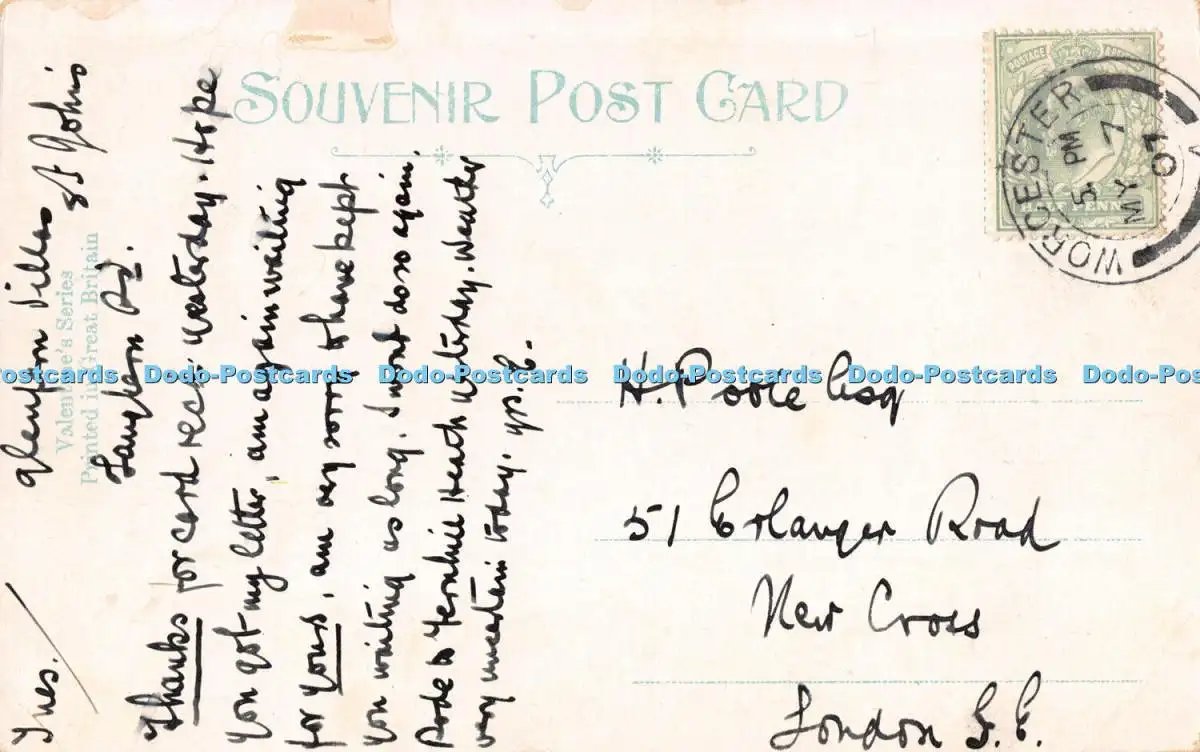 SOUVENIR POST CARD
Valentine's Series
Printed in Great Britain
POSTAGE & REVENUE
HALF PENNY
WORCESTER
5 PM
MY 7
07
Tues. Glenfron Villas
St Johns
Laughern Rd.
Thanks for card recd yesterday. Hope
you got my letter, am again waiting
for yours, am very sorry to have kept
you waiting so long. I wont do so again.
Rode to Fernhill Heath yesterday. Weather
very uncertain today. yrs. E.
H. Poole Esq
51 Erlanger Road
New Cross
London S.E.
Dodo-Postcards Dodo-Postcards Dodo-Postcards Dodo-Postcards Dodo-Postcards Dodo-Pos